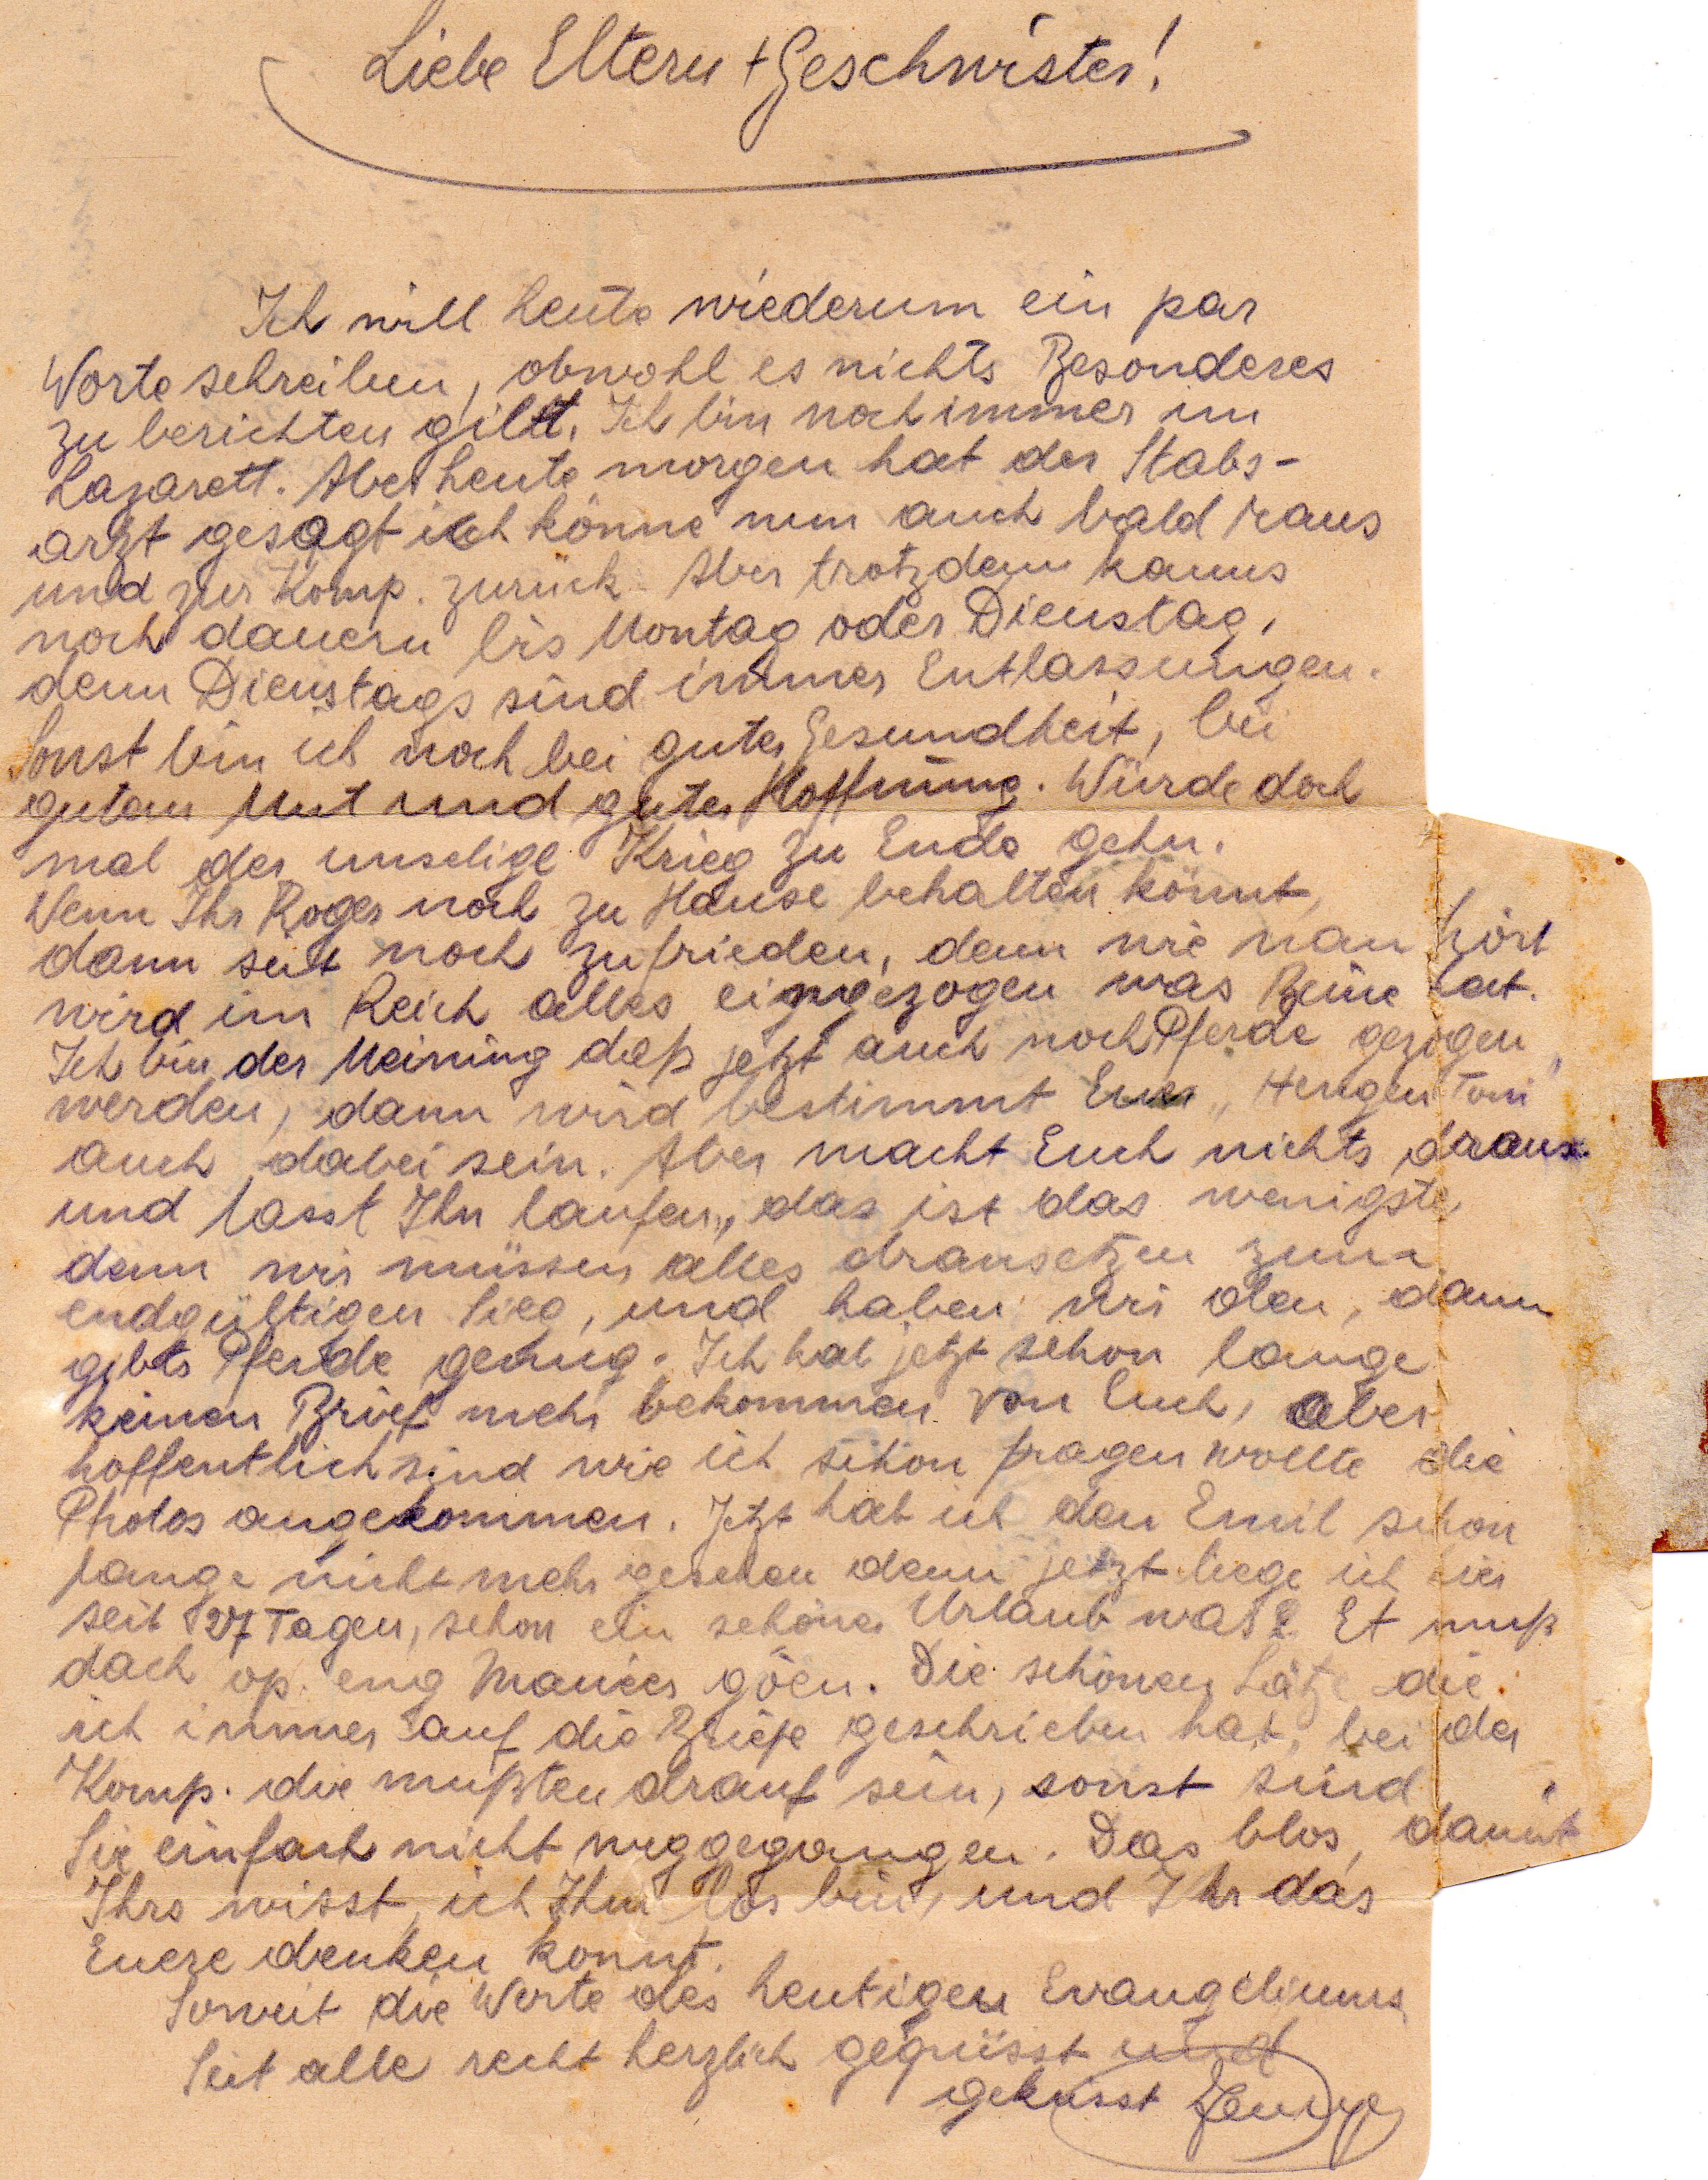 Liebe Eltern + Geschwister!
Ich will heute wiederum ein par
Worte schreiben, obwohl es nichts Besonderes
zu berichten gibt. Ich bin noch immer im
Lazarett. Aber heute morgen hat der Stabs-
arzt gesagt ich könne nun auch bald raus
und zur Komp. zurück. Aber trotzdem kanns
noch dauern bis Montag oder Dienstag,
denn Dienstags sind immer Entlassungen.
Sonst bin ich noch bei guter Gesundheit, bei
gutem Mut und guter Hoffnung. Würde doch
mal der unselige Krieg zu Ende gehn.
Wenn Ihr Roger noch zu Hause behalten könnt,
dann seit noch zufrieden, denn wie man hört
wird im Reich alles eingezogen was Beine hat.
Ich bin der Meinung daß jetzt auch noch Pferde gezogen
werden, dann wird bestimmt Euer "Hengen Toni
auch dabei sein. Aber macht Euch nichts draus
und lasst Ihn laufen, das ist das wenigste,
denn wir müssen alles dransetzen zum
endgültigen Sieg, und haben wir den, dann
gibts Pferde genug. Ich hab jetzt schon lange
keinen Brief mehr bekommen von Euch, aber
hoffentlich sind wie ich schon fragen wollte die
Photos angekommen. Jetzt hab ich den Emil schon
lange nicht mehr gesehen denn jetzt liege ich hier
seit 27 Tagen, schon ein schöner Urlaub was? Et muß
dach op eng Manéer goën. Die schönen Sätze die
ich immer auf die Briefe geschrieben hab, bei der
Komp. die mußten drauf sein, sonst sind
Sie einfach nicht weggegangen. Das blos, damit
Ihrs wisst, ich Ihm los bin, und Ihr das
Euere denken konnt.
Soweit die Worte des heutigen Evangeliums
Seit alle recht herzlich gegrüsst und
geküsst